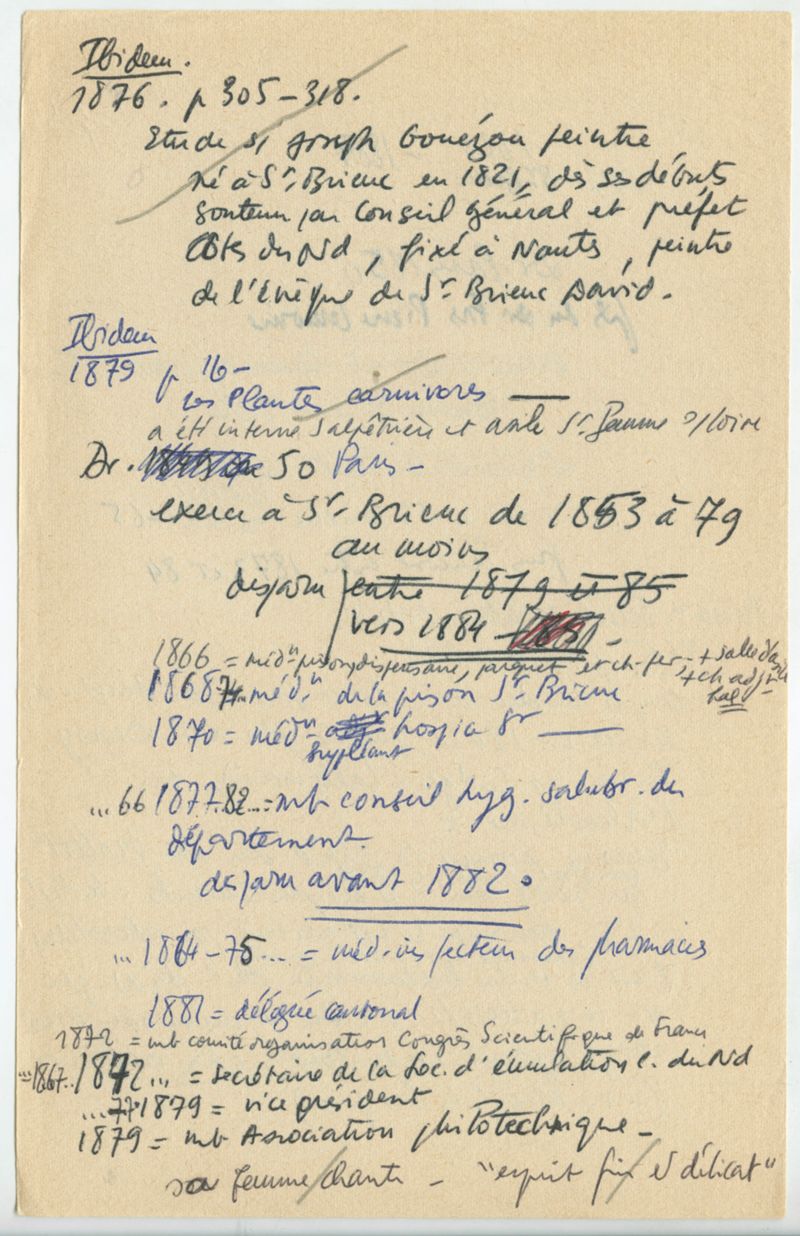 Ibidem.
1876. p 305-318.
Etude s/ Joseph Gouézou peintre,
né à St-Brieuc en 1821, dès ses débuts
soutenu par Conseil Général et préfet
Côtes du Nd, fixé à Nantes, peintre
de l'évêque de St Brieuc David.
Ibidem
1879 p 16-
Les Plantes carnivores
a été interne Salpêtrière et asile St-Gemme s/Loire
Dr. 50 Paris-
exerce à St-Brieuc de 1853 à 79
au moins
disparu entre 1879 et 85
vers 1884
1866 = médn prison, dispensaire, parquet et ch-fer, + salle d'asile
+ ch adj
1868-74... = médn de la prison St-Brieuc
1870 = médn hospice Gr
suppléant
...66 1877.82...= mb conseil hyg. salubr. du
département.
disparu avant 1882.
...1864-75... = méd-inspecteur des pharmacies
1881 = délégué cantonal
1872 = mb comité organisation Congrès Scientifique de France
...1867..1872... = secrétaire de la Soc. d'émulation C. du Nd
...77.1879 = vice président
1879 = mb Association philotechnique-
sa femme chante - "esprit fin et délicat"